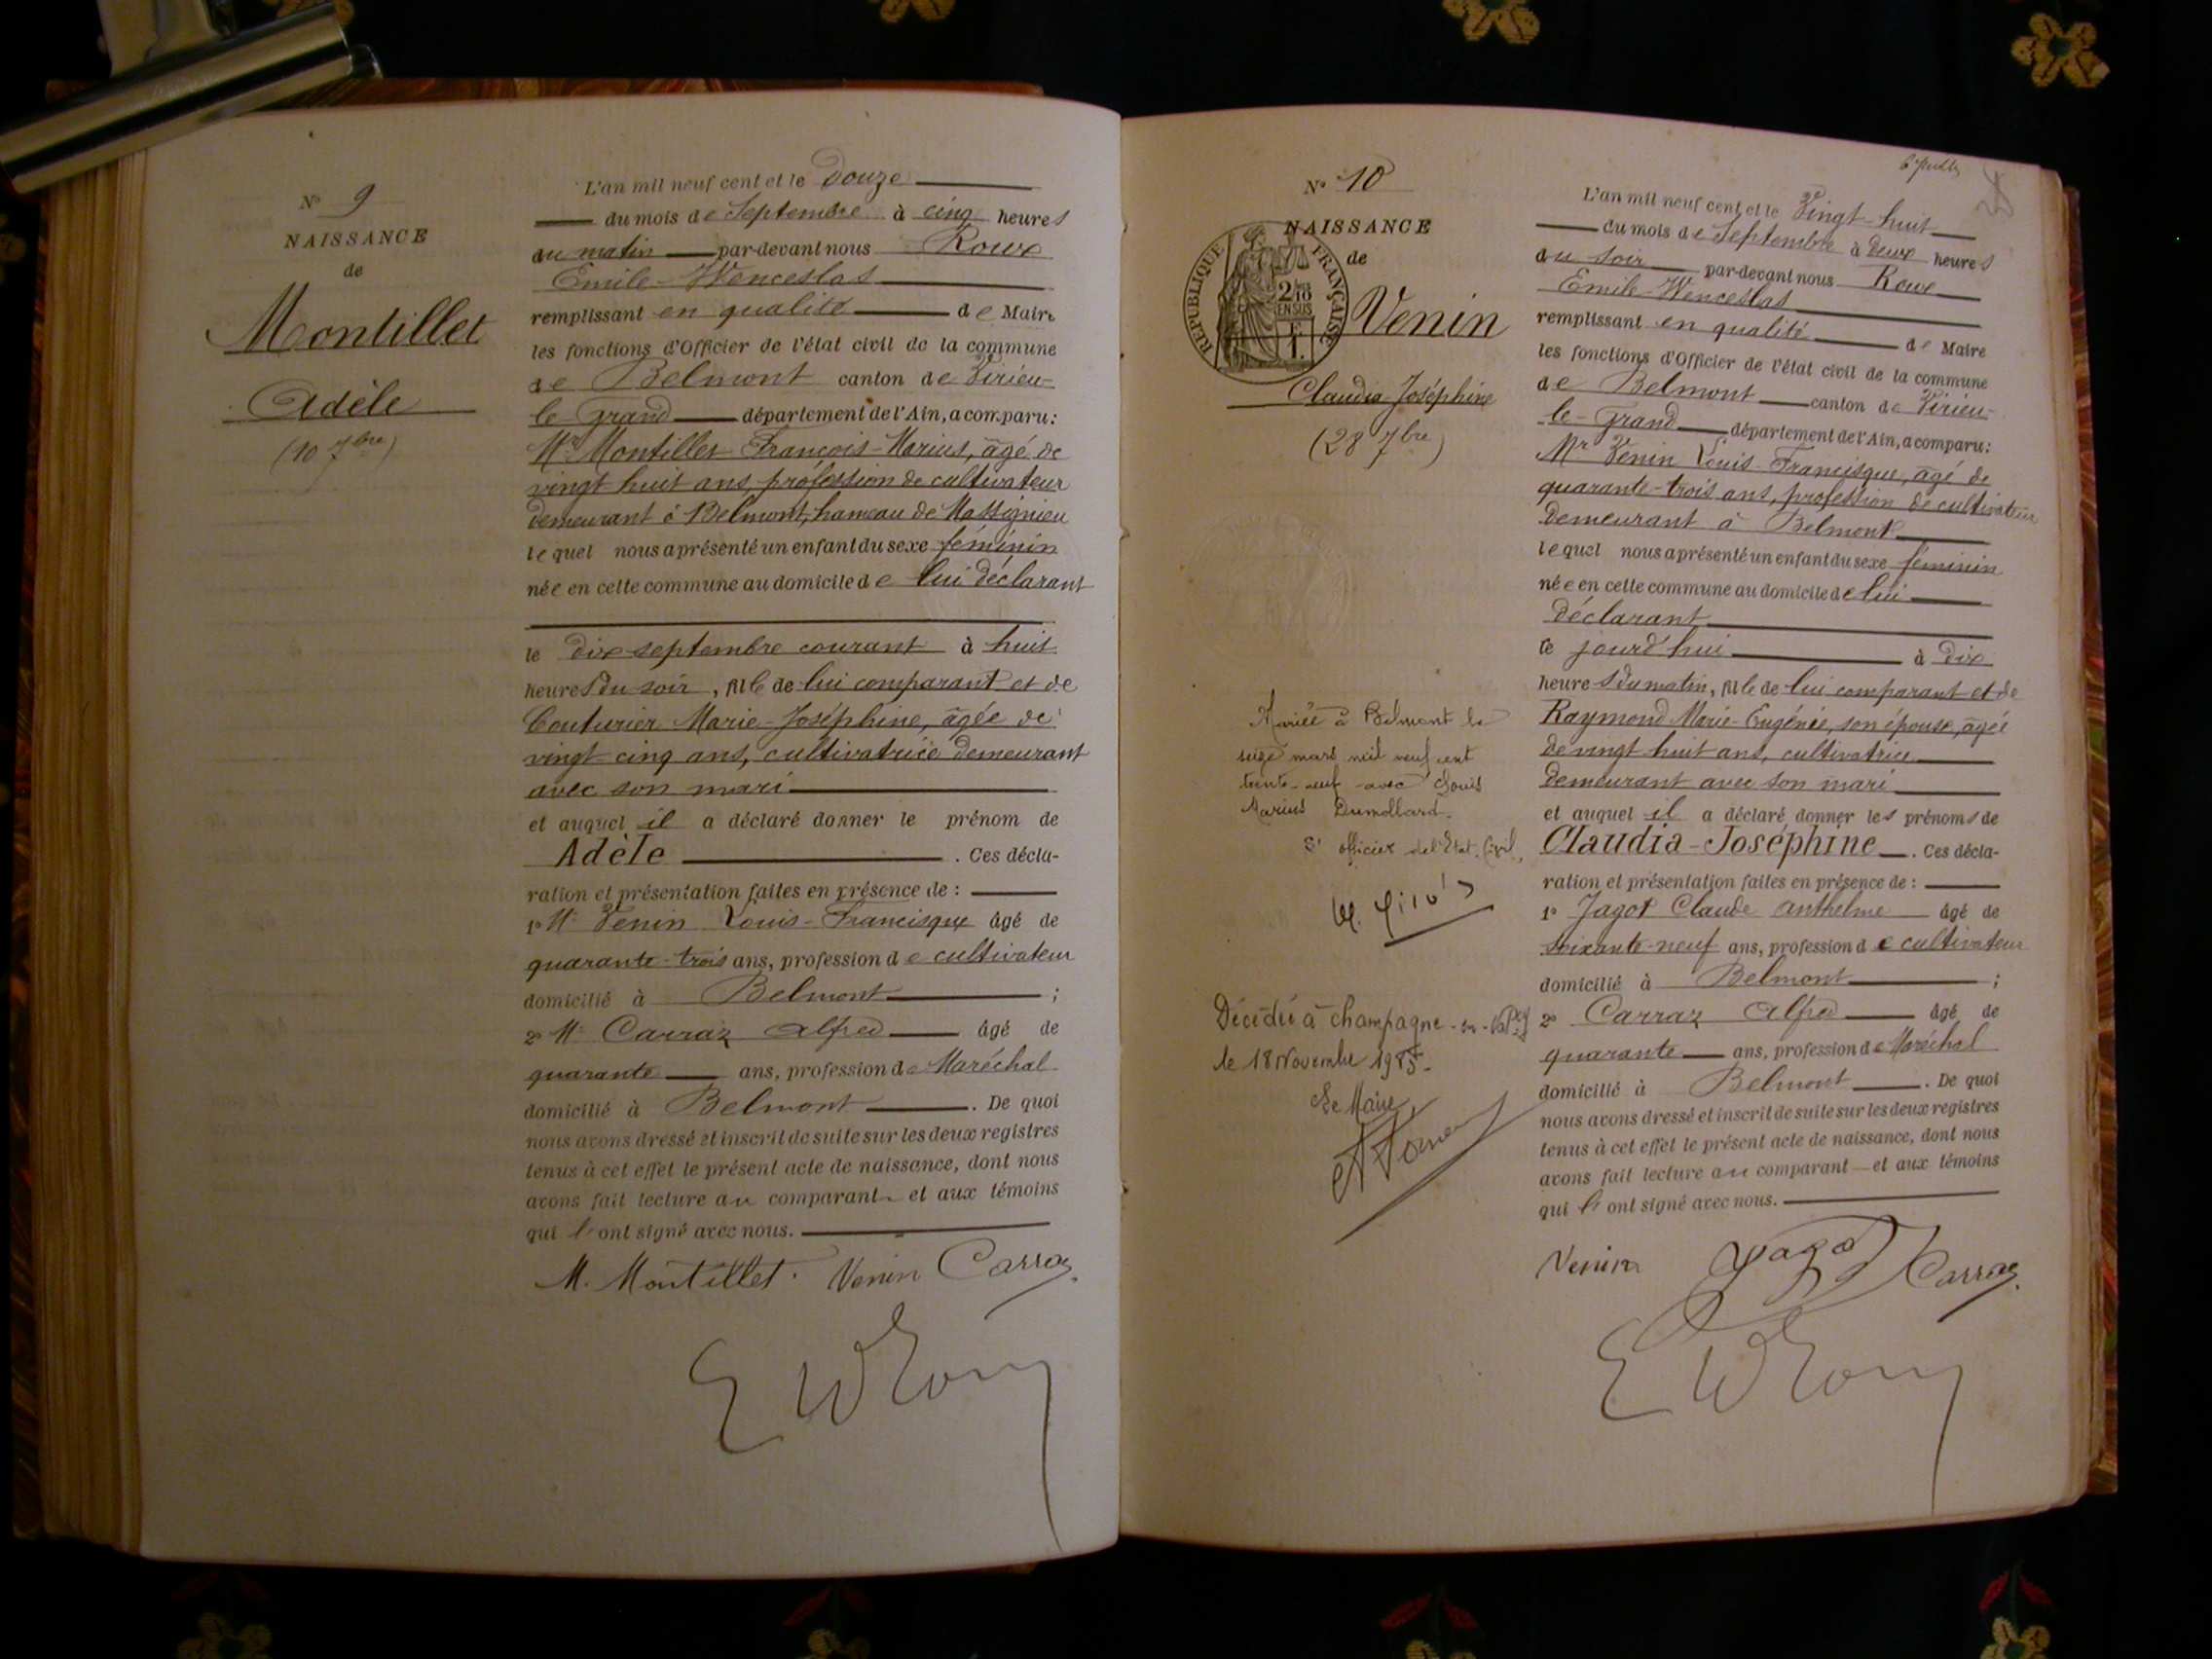 Nº 9
NAISSANCE
de
Montillet
Adèle
(10 7bre)
L'an mil neuf cent et le Douze
du mois de Septembre à cinq heures
du matin par-devant nous Roux
Emile-Wenceslas
remplissant en qualité de Maire
les fonctions d'Officier de l'état civil de la commune
de Belmont canton de Virieu-
le-Grand département de l'Ain, a comparu:
Mr Montillet François-Marius, âgé de
vingt huit ans, profession de cultivateur
demeurant à Belmont, hameau de Massignieu
lequel nous a présenté un enfant du sexe féminin
née en cette commune au domicile de lui déclarant
le dix septembre courant à huit
heures du soir, fille de lui comparant et de
Couturier Marie-Joséphine, âgée de
vingt-cinq ans, cultivatrice demeurant
avec son mari
et auquel il a déclaré donner le prénom de
Adèle . Ces décla-
ration et présentation faites en présence de :
1º Mr Venin Louis-Francisque âgé de
quarante-trois ans, profession de cultivateur
domicilié à Belmont ;
2º Mr Carraz Alfred âgé de
quarante ans, profession de Maréchal
domicilié à Belmont . De quoi
nous avons dressé et inscrit de suite sur les deux registres
tenus à cet effet le présent acte de naissance, dont nous
avons fait lecture au comparant et aux témoins
qui l'ont signé avec nous.
M. Montillet. Venin Carraz
E W Roux
Nº 10
NAISSANCE
de
RÉPUBLIQUE FRANÇAISE
2/10 EN SUS
1 F.
Venin
Claudia-Joséphine
(28 7bre)
Mariée à Belmont le
seize mars mil neuf cent
trente-neuf avec Louis
Marius Dumollard.
L' officier de l'Etat-Civil,
Décédée à Champagne-en-
le 18 Novembre 1985.
Le Maire,
L'an mil neuf cent et le Vingt-huit
du mois de Septembre à Deux heures
du soir par-devant nous Roux
Emile-Wenceslas
remplissant en qualité de Maire
les fonctions d'Officier de l'état civil de la commune
de Belmont canton de Virieu-
le-Grand département de l'Ain, a comparu:
Mr Venin Louis-Francisque, âgé de
quarante-trois ans, profession de cultivateur
demeurant à Belmont
lequel nous a présenté un enfant du sexe féminin
née en cette commune au domicile de lui
déclarant
ce jourd'hui à dix
heures du matin, fille de lui comparant et de
Raymond Marie-Eugénie, son épouse, âgée
de vingt huit ans, cultivatrice
demeurant avec son mari
et auquel il a déclaré donner les prénoms de
Claudia-Joséphine . Ces décla-
ration et présentation faites en présence de :
1º Jagot Claude Anthelme âgé de
soixante-neuf ans, profession de cultivateur
domicilié à Belmont ;
2º Carraz Alfred âgé de
quarante ans, profession de Maréchal
domicilié à Belmont . De quoi
nous avons dressé et inscrit de suite sur les deux registres
tenus à cet effet le présent acte de naissance, dont nous
avons fait lecture au comparant et aux témoins
qui l'ont signé avec nous.
Venin Jagot Carraz
E W Roux